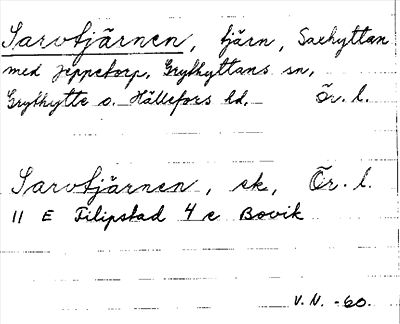 Sarvtjärnen, tjärn, Saxhyttan
med Jeppetorp, Grythyttans sn,
Grythytte o. Hällefors hd, Ör. l.
Sarvtjärnen, ek, Ör. l.
11 E Filipstad 4 c Bovik
V. N. -60.